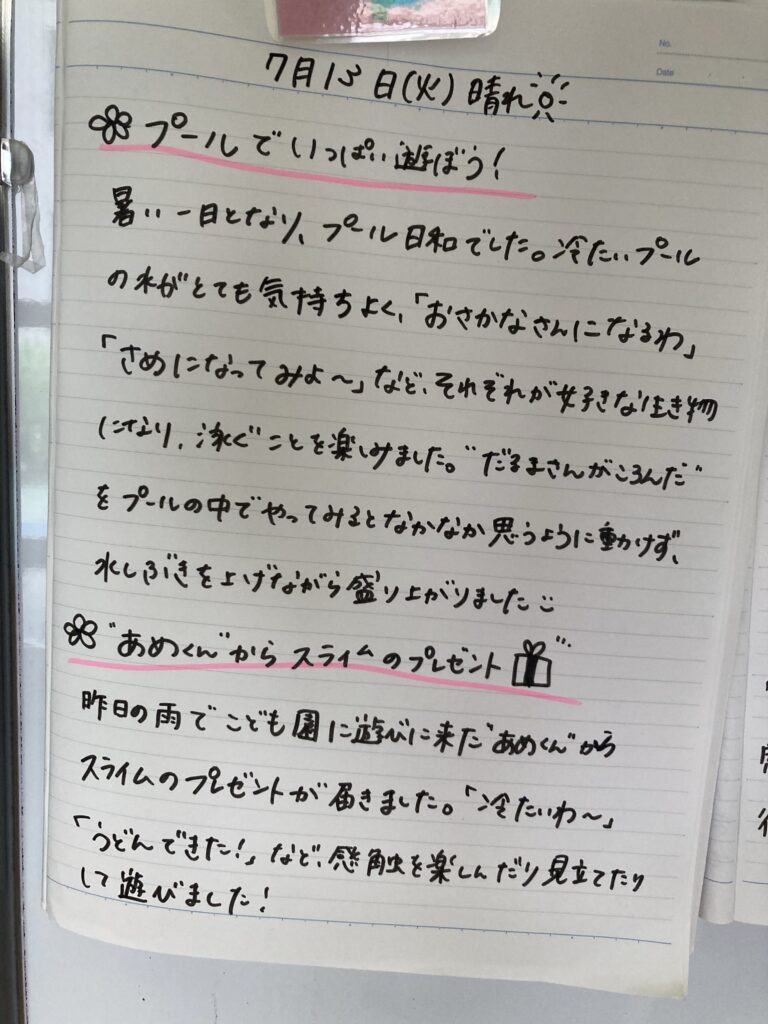 No.
Date
7月13日(火) 晴れ
プールでいっぱい遊ぼう!
暑い一日となり、プール日和でした。冷たいプール
の水がとても気持ちよく、「おさかなさんになるわ」
「さめになってみよ〜」など、それぞれが好きな生き物
になり、泳ぐことを楽しみました。"だるまさんがころんだ"
をプールの中でやってみるとなかなか思うように動けず、
水しぶきを上げながら盛り上がりました
"あめくん"からスライムのプレゼント
昨日の雨でこども園に遊びに来た"あめくん"から
スライムのプレゼントが届きました。「冷たいわ〜」
「うどんできた!」など、感触を楽しんだり見立てたり
して遊びました!